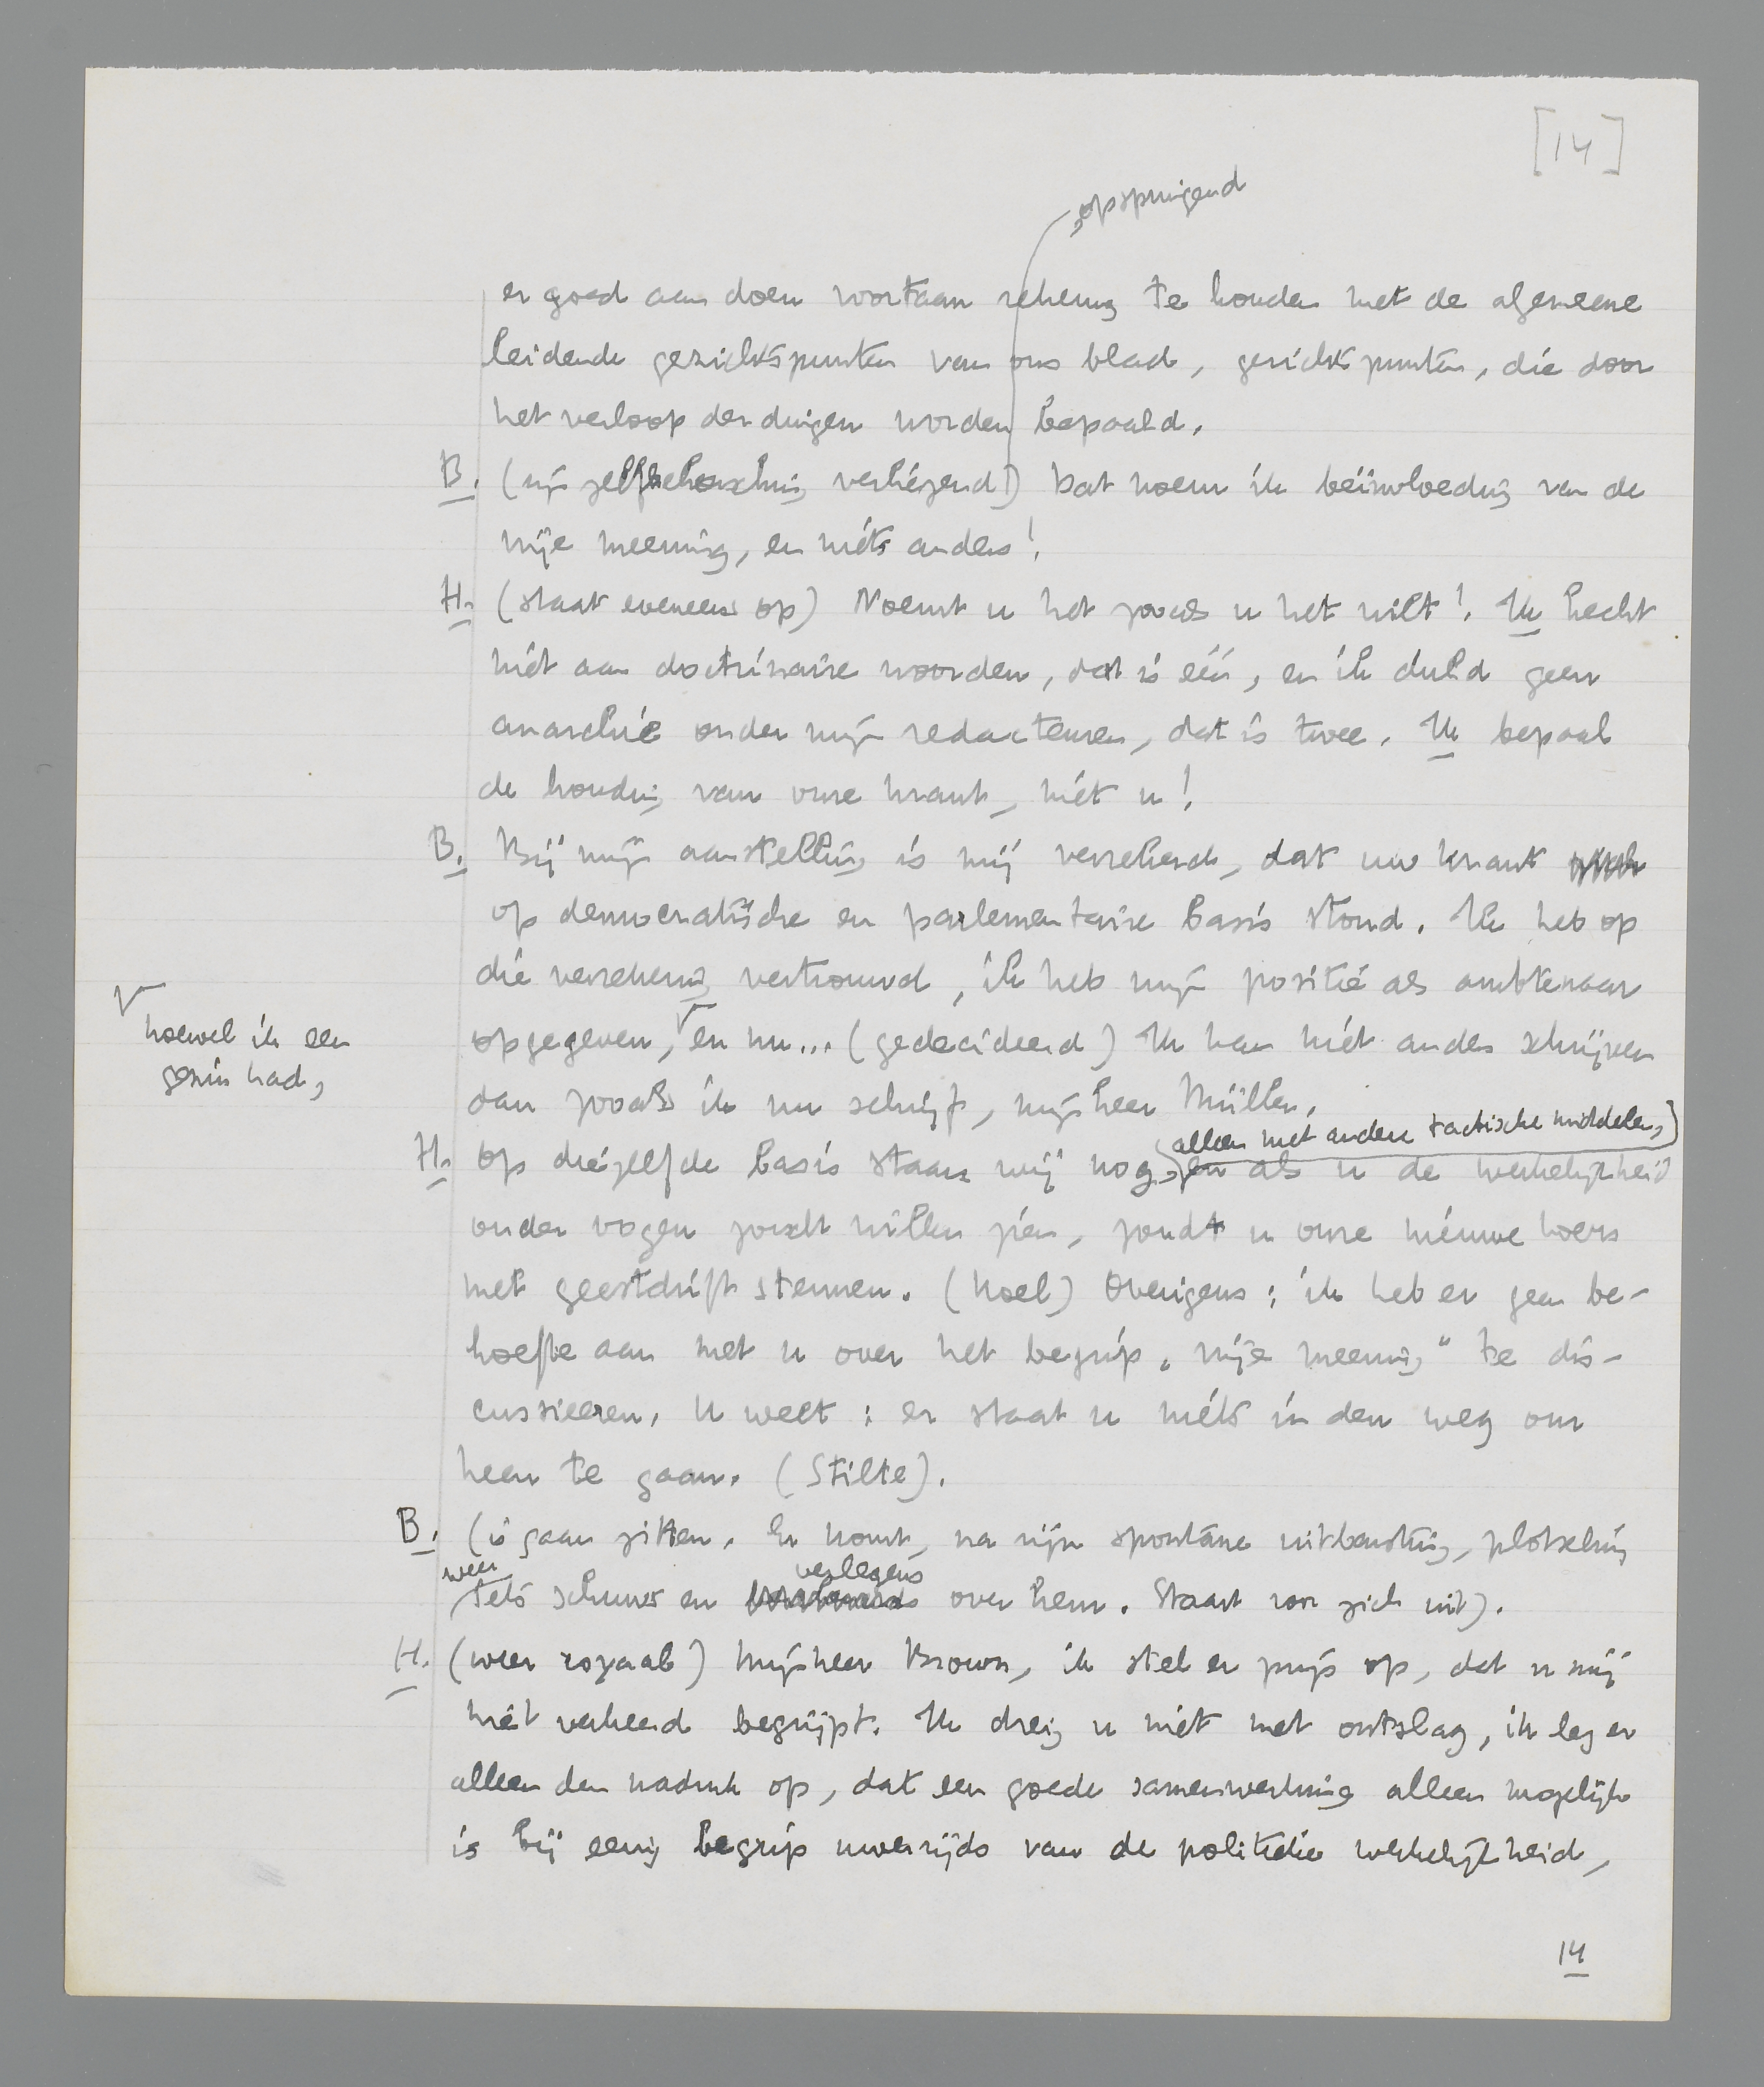 [14]
, opspringend
er goed aan doen voortaan rekening te houden met de algemeene
leidende gezichtspunten van ons blad, gezichtspunten, die door
het verloop der dingen worden bepaald.
B. (zijn zelfbeheersching verliezend) Dat noem ik beïnvloeding van de
vrije meening, en niets anders!
H. (staat eveneens op) Noemt u het zooals u het wilt! Ik hecht
niet aan doctrinaire woorden, dat is één, en ik duld geen
anarchie onder mijn redacteuren, dat is twee. Ik bepaal
de houding van onze krant, niet u!
B. Bij mijn aanstelling is mij verzekerd, dat uw krant
op democratische en parlementaire basis stond. Ik heb op
die verzekering vertrouwd, ik heb mijn positie als ambtenaar
hoewel ik een
gezin had,
opgegeven, en nu... (gedecideerd) Ik kan niet anders schrijven
dan zooals ik nu schrijf, mijnheer Müller.
alleen met andere tactische middelen,
H. Op diezelfde basis staan wij nog, en als u de werkelijkheid
onder oogen zoudt willen zien, zoudt u onze nieuwe koers
met geestdrift steunen. (koel) Overigens: ik heb er geen be-
hoefte aan met u over het begrip „vrije meening" te dis-
cussieeren. U weet: er staat u niets in den weg om
heen te gaan. (Stilte).
B. (is gaan zitten. Er komt, na zijn spontane uitbarsting, plotseling
weer verlegens
iets schuws en over hem. Staart voor zich uit).
H. (weer royaal) Mijnheer Brown, ik stel er prijs op, dat u mij
niet verkeerd begrijpt. Ik dreig u niet met ontslag, ik leg er
alleen den nadruk op, dat een goede samenwerking alleen mogelijk
is bij eenig begrip uwerzijds van de politieke werkelijkheid,
14